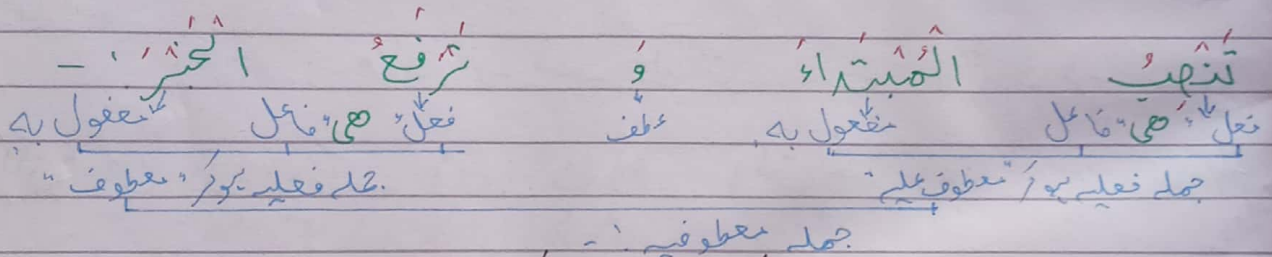 تَنْصِبُ الْمُبْتَدَاءَ وَ تَرْفَعُ الْخَبَرَ :-
فعل "ھی" فاعل مفعول بہ عطف فعل "ھی" فاعل مفعول بہ
جملہ فعلیہ ہوکر "معطوف علیہ" جملہ فعلیہ ہوکر "معطوف"
جملہ معطوفیہ :-